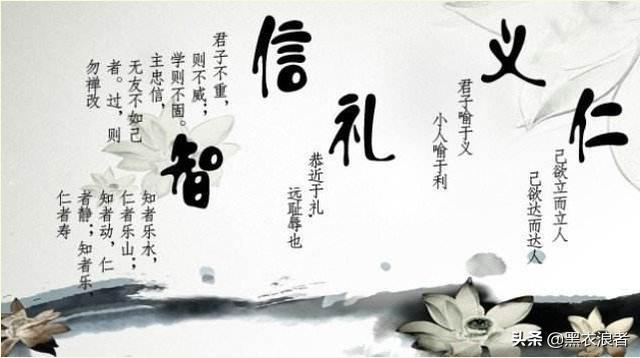 仁
己欲立而立人
己欲达而达人
义
君子喻于义
小人喻于利
礼
恭近于礼,
远耻辱也
智
知者乐水,
仁者乐山;
知者动,仁
者静;知者乐,
仁者寿
信
君子不重,
则不威;
学则不固。
主忠信,
无友不如己
者。过,则
勿禅改
头条 @黑衣浪者